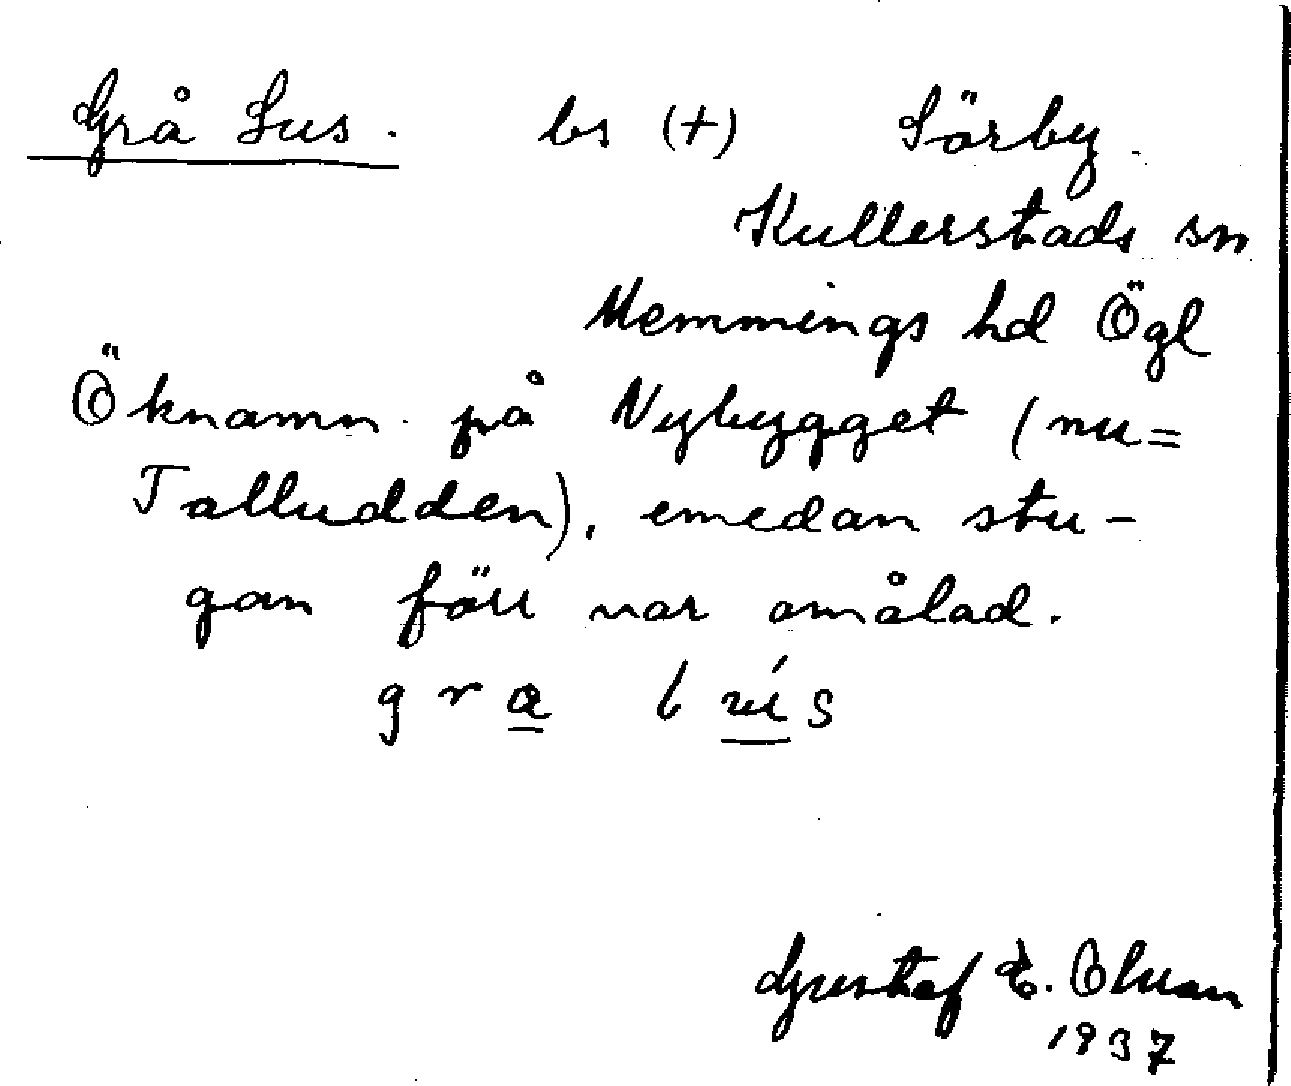 Grå Lus. bs (+) Sörby.
Kullerstads sn
Memmings hd Ögl
Öknamn på Nybygget (nu=
Talludden), emedan stu-
gan förr var omålad.
gra
Gustaf E.
1937